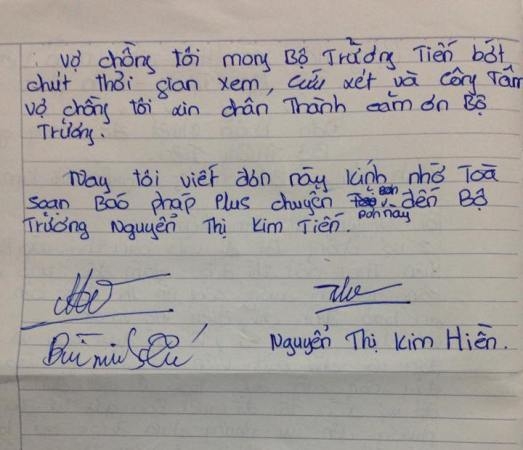 Vợ chồng tôi mong Bộ Trưởng Tiến bớt
chút thời gian xem, cứu xét và Công Tâm
vợ chồng tôi xin chân Thành cảm ơn Bộ
Trưởng.
Nay tôi viết đơn này kính nhờ Toà
soạn Báo pháp Plus chuyển đến Bộ
Trưởng Nguyễn Thị Kim Tiến.
Nguyễn Thị Kim Hiền.